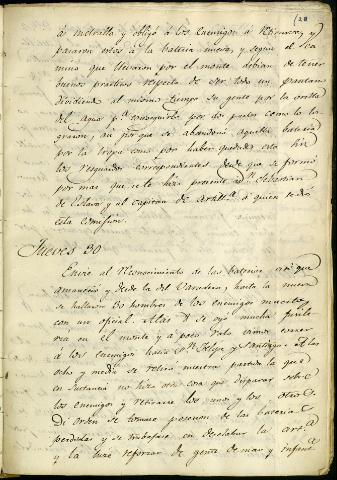 (20
à metralla y obligó à los Enemigos á Retirarse, y
pasaron estos à la bateria nueva, y segun el ca
mino que llevaron por el monte debian de tener
buenos practicos respecto de ser todo un pantano
dividiendo al mismo tiempo su gente por la orilla
del Agua pª conseguirlo por dos puntos como lo lo
graron, asi por que se abandonó aquella bateria
por la tropa como por haber quedado esta sin
los resguardos correspondientes desde que se formó
por mas que se le hizo presente a Dn Sebastian
de Eslava y al capitan de Artillª á quien se dió
esta comision.
Jueves 30
Envie al Reconocimiento de las baterias asi que
amaneció y desde la del Varadero, hasta la nueva
se hallaron 30 hombres de los enemigos muertos
con un oficial. A las 8 se oyó mucha fusile
ria en el monte y a poco rato vimos correr
à los Enemigos hacia Sn Felipe y Santiago. A las
ocho y media se retiró nuestra partida la que
en sustancia no hizo otra cosa que disparar sobre
los enemigos y retirarse los unos y los otros.
Di orden se tomase posesion de las baterias
perdidas y se trabajase en desclabar la artª
y la hice reforzar de gente de mar y infantª